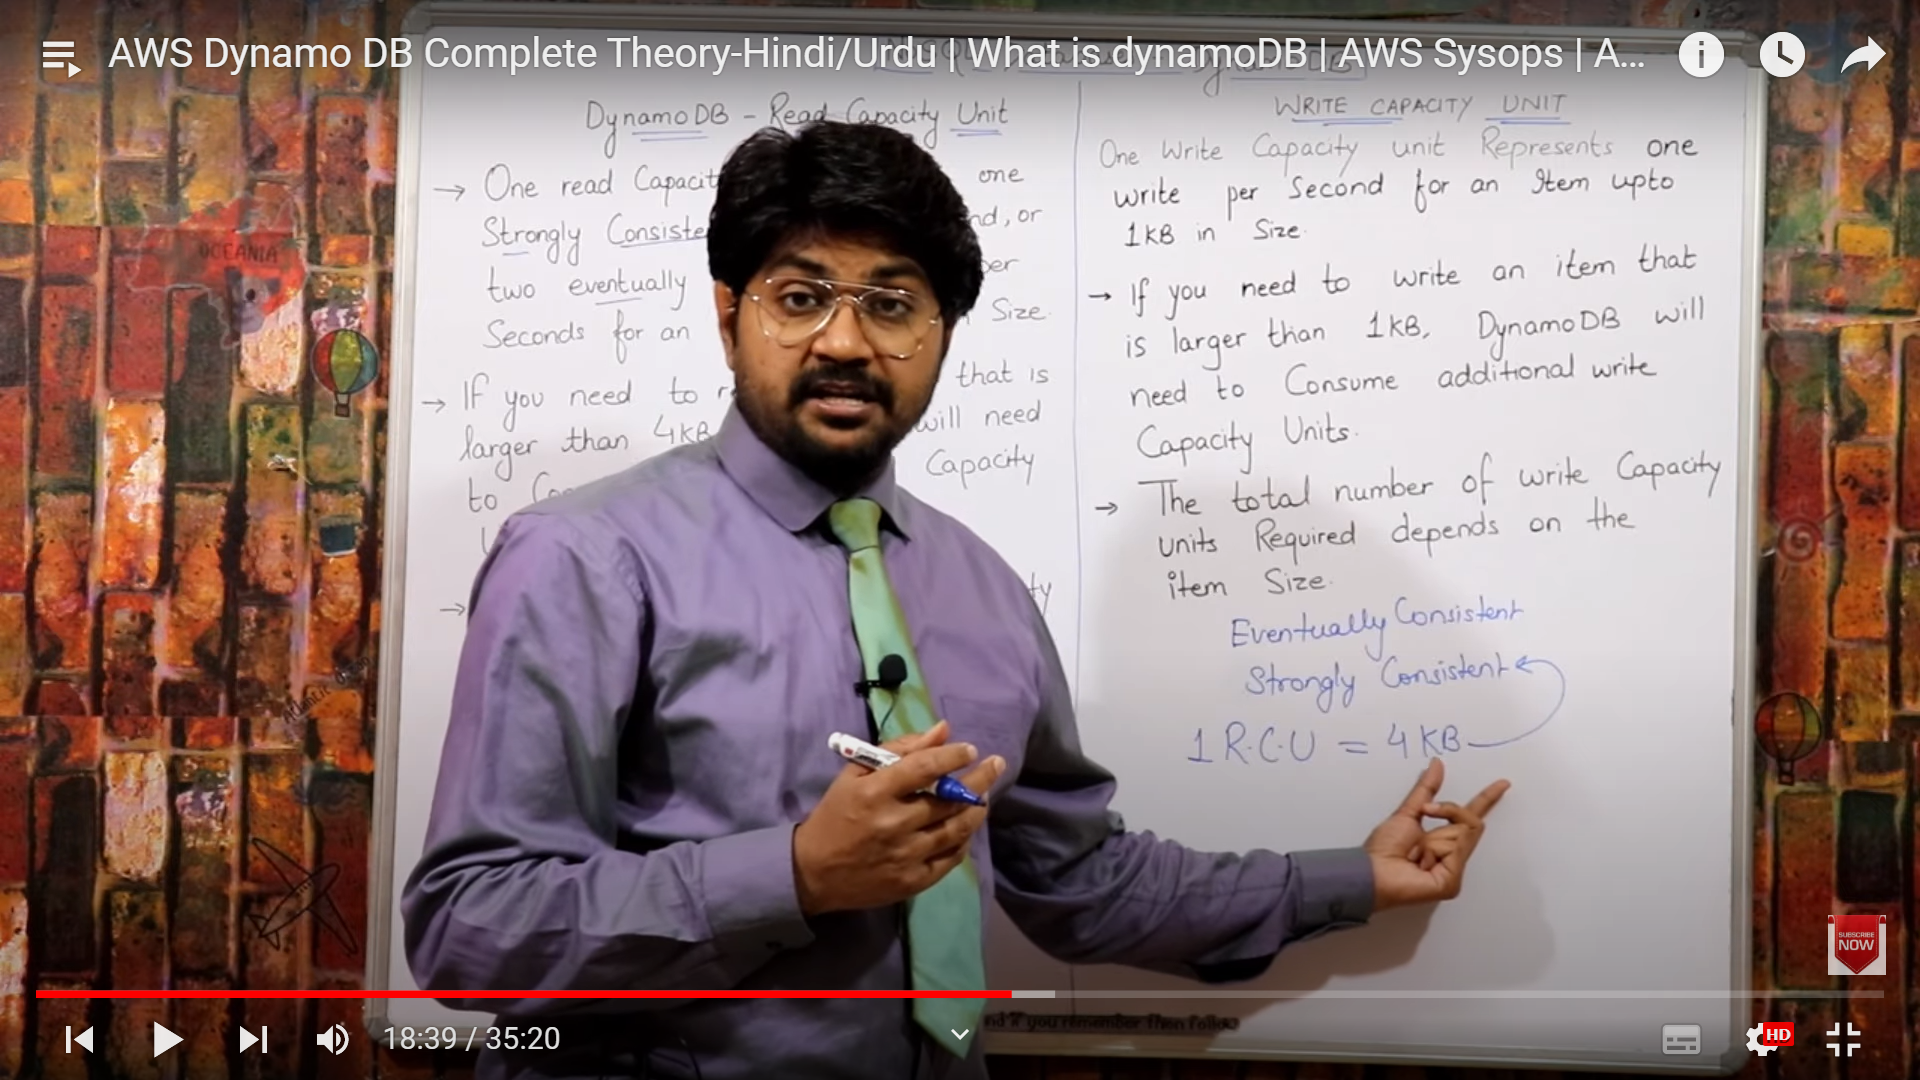 AWS Dynamo DB Complete Theory-Hindi/Urdu | What is dynamoDB | AWS Sysops | A...
DynamoDB - Read Capacity Unit
→ One read Capacit one
Strongly Consiste nd, or
two eventually per
Seconds for an Size.
→ If you need to r that is
larger than 4KB will need
to Con Capacity
U
→ ty
WRITE CAPACITY UNIT
One Write Capacity unit Represents one
write per Second for an Item upto
1KB in Size.
→ If you need to write an item that
is larger than 1KB, DynamoDB will
need to Consume additional write
Capacity Units.
→ The total number of write Capacity
units Required depends on the
item Size.
Eventually Consistent
Strongly Consistent
1 R.C.U = 4 KB
OCEANIA
SUBSCRIBE
NOW
nd if you remember then follow
18:39 / 35:20
HD